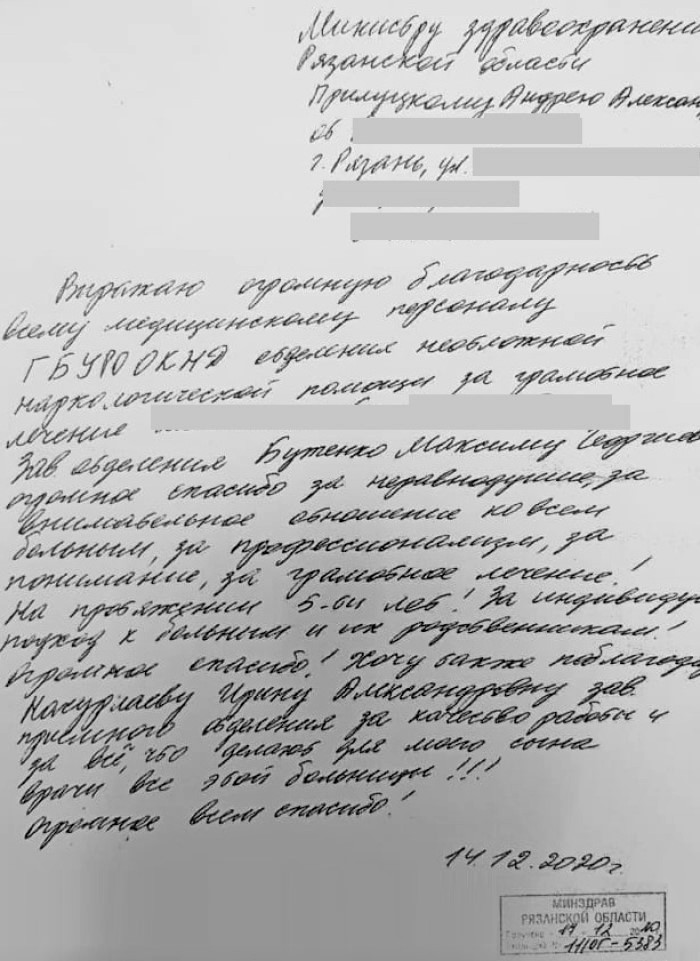 Министру здравоохранени
Рязанской области
Прилуцкому Андрею Алексан
от
г. Рязань, ул.
Выражаю огромную благодарность
всему медицинскому персоналу
ГБУ РО ОКНД отделения неотложной
наркологической помощи за грамотное
лечение
Зав отделения Бутенко Максиму Георгиев
огромное спасибо за неравнодушие, за
внимательное отношение ко всем
больным, за профессионализм, за
понимание, за грамотное лечение!
На протяжении 5-ти лет! За индивидуа
подход к больным и их родственникам!
Огромное спасибо! Хочу также поблагода
Ирину Александровну зав.
приемного отделения за качество работы и
за всё, что делают для моего сына
врачи все этой больницы!!!
Огромное всем спасибо!
14.12.2020г.
МИНЗДРАВ
РЯЗАНСКОЙ ОБЛАСТИ
12 20
-5383